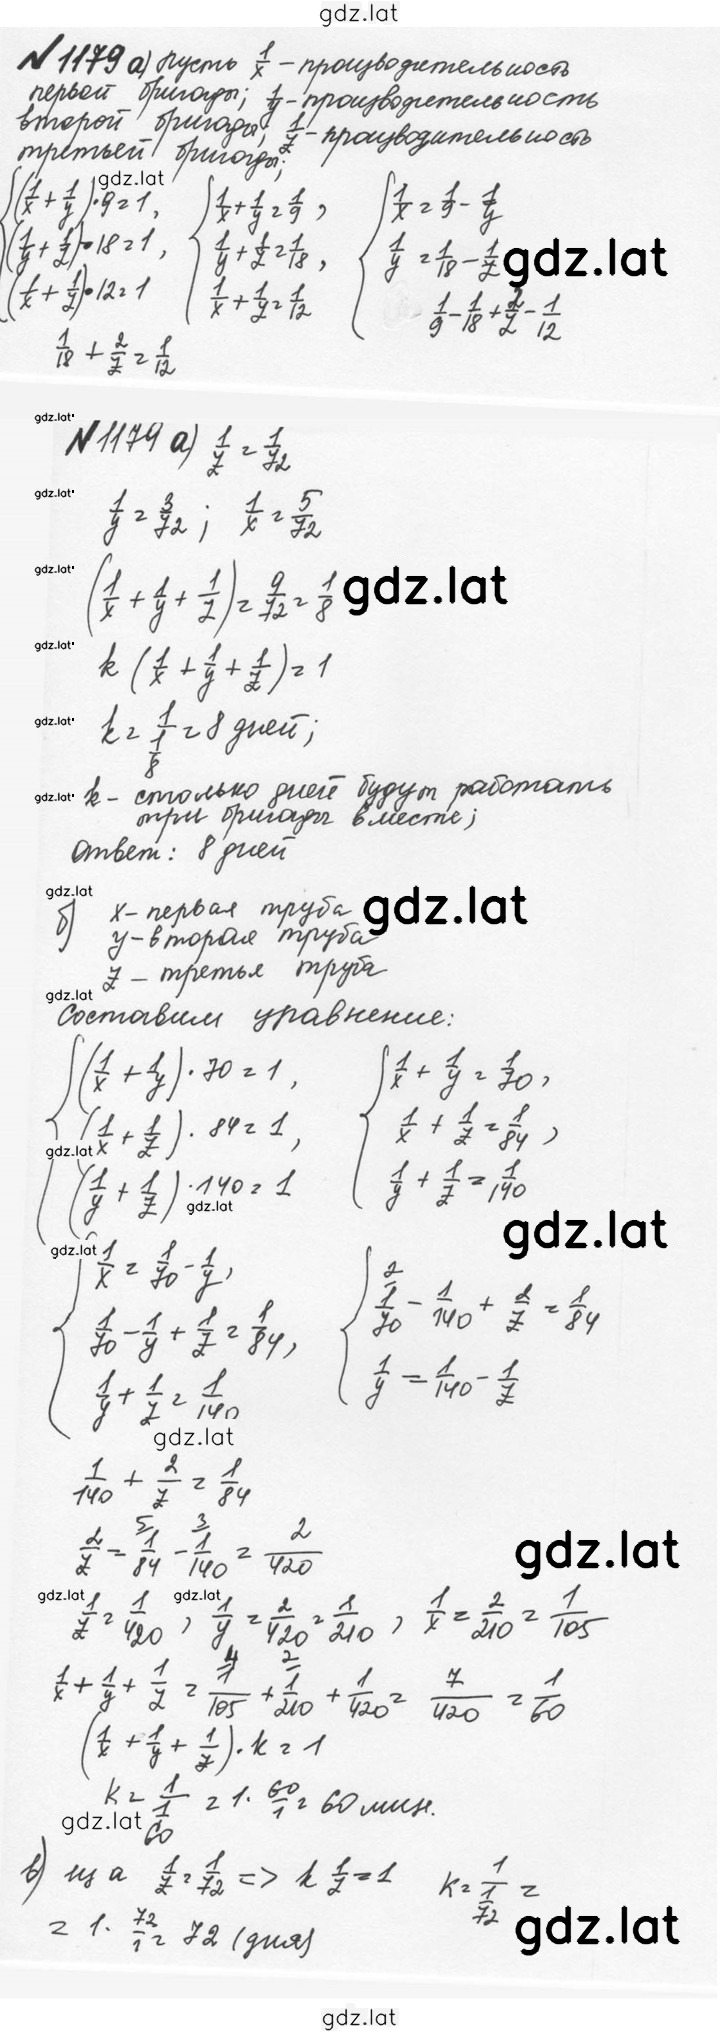 gdz.lat
№1179 а) Пусть 1/x – производительность
первой бригады; 1/y – производительность
второй бригады; 1/z – производительность
третьей бригады;
gdz.lat
{ (1/x + 1/y)·9=1, { 1/x + 1/y = 1/9, { 1/x = 1/9 - 1/y
(1/y + 1/z)·18=1, 1/y + 1/z = 1/18, 1/y = 1/18 - 1/z gdz.lat
(1/x + 1/z)·12=1 1/x + 1/z = 1/12 1/9 - 1/18 + 2/z - 1/12
1/18 + 2/z = 1/12
gdz.lat
№1179 а) 1/z = 1/72
gdz.lat
1/y = 3/72; 1/x = 5/72
gdz.lat
(1/x + 1/y + 1/z) = 9/72 = 1/8 gdz.lat
gdz.lat
k (1/x + 1/y + 1/z) = 1
gdz.lat
k = 1/(1/8) = 8 дней;
gdz.lat k – столько дней будут работать
три бригады вместе;
Ответ: 8 дней
gdz.lat
б) x – первая труба gdz.lat
y – вторая труба
z – третья труба
gdz.lat
Составим уравнение:
{ (1/x + 1/y)·70=1, { 1/x + 1/y = 1/70,
(1/x + 1/z)·84=1, 1/x + 1/z = 1/84,
gdz.lat
(1/y + 1/z)·140=1 1/y + 1/z = 1/140
gdz.lat
gdz.lat
gdz.lat
{ 1/x = 1/70 - 1/y, { 2 1/70 - 1/140 + 2/z = 1/84
1/70 - 1/y + 1/z = 1/84, 1/y = 1/140 - 1/z
1/y + 1/z = 1/140
gdz.lat
1/140 + 2/z = 1/84
2/z = 5 1/84 - 3 1/140 = 2/420 gdz.lat
gdz.lat gdz.lat
1/z = 1/420, 1/y = 2/420 = 1/210, 1/x = 2/210 = 1/105
1/x + 1/y + 1/z = 4 1/105 + 2 1/210 + 1/420 = 7/420 = 1/60
(1/x + 1/y + 1/z)·k = 1
k = 1/(1/60) = 1·60/1 = 60 мин.
gdz.lat
в) из а 1/z = 1/72 => k 1/z = 1 k = 1/(1/72) =
= 1·72/1 = 72 (дня) gdz.lat
gdz.lat